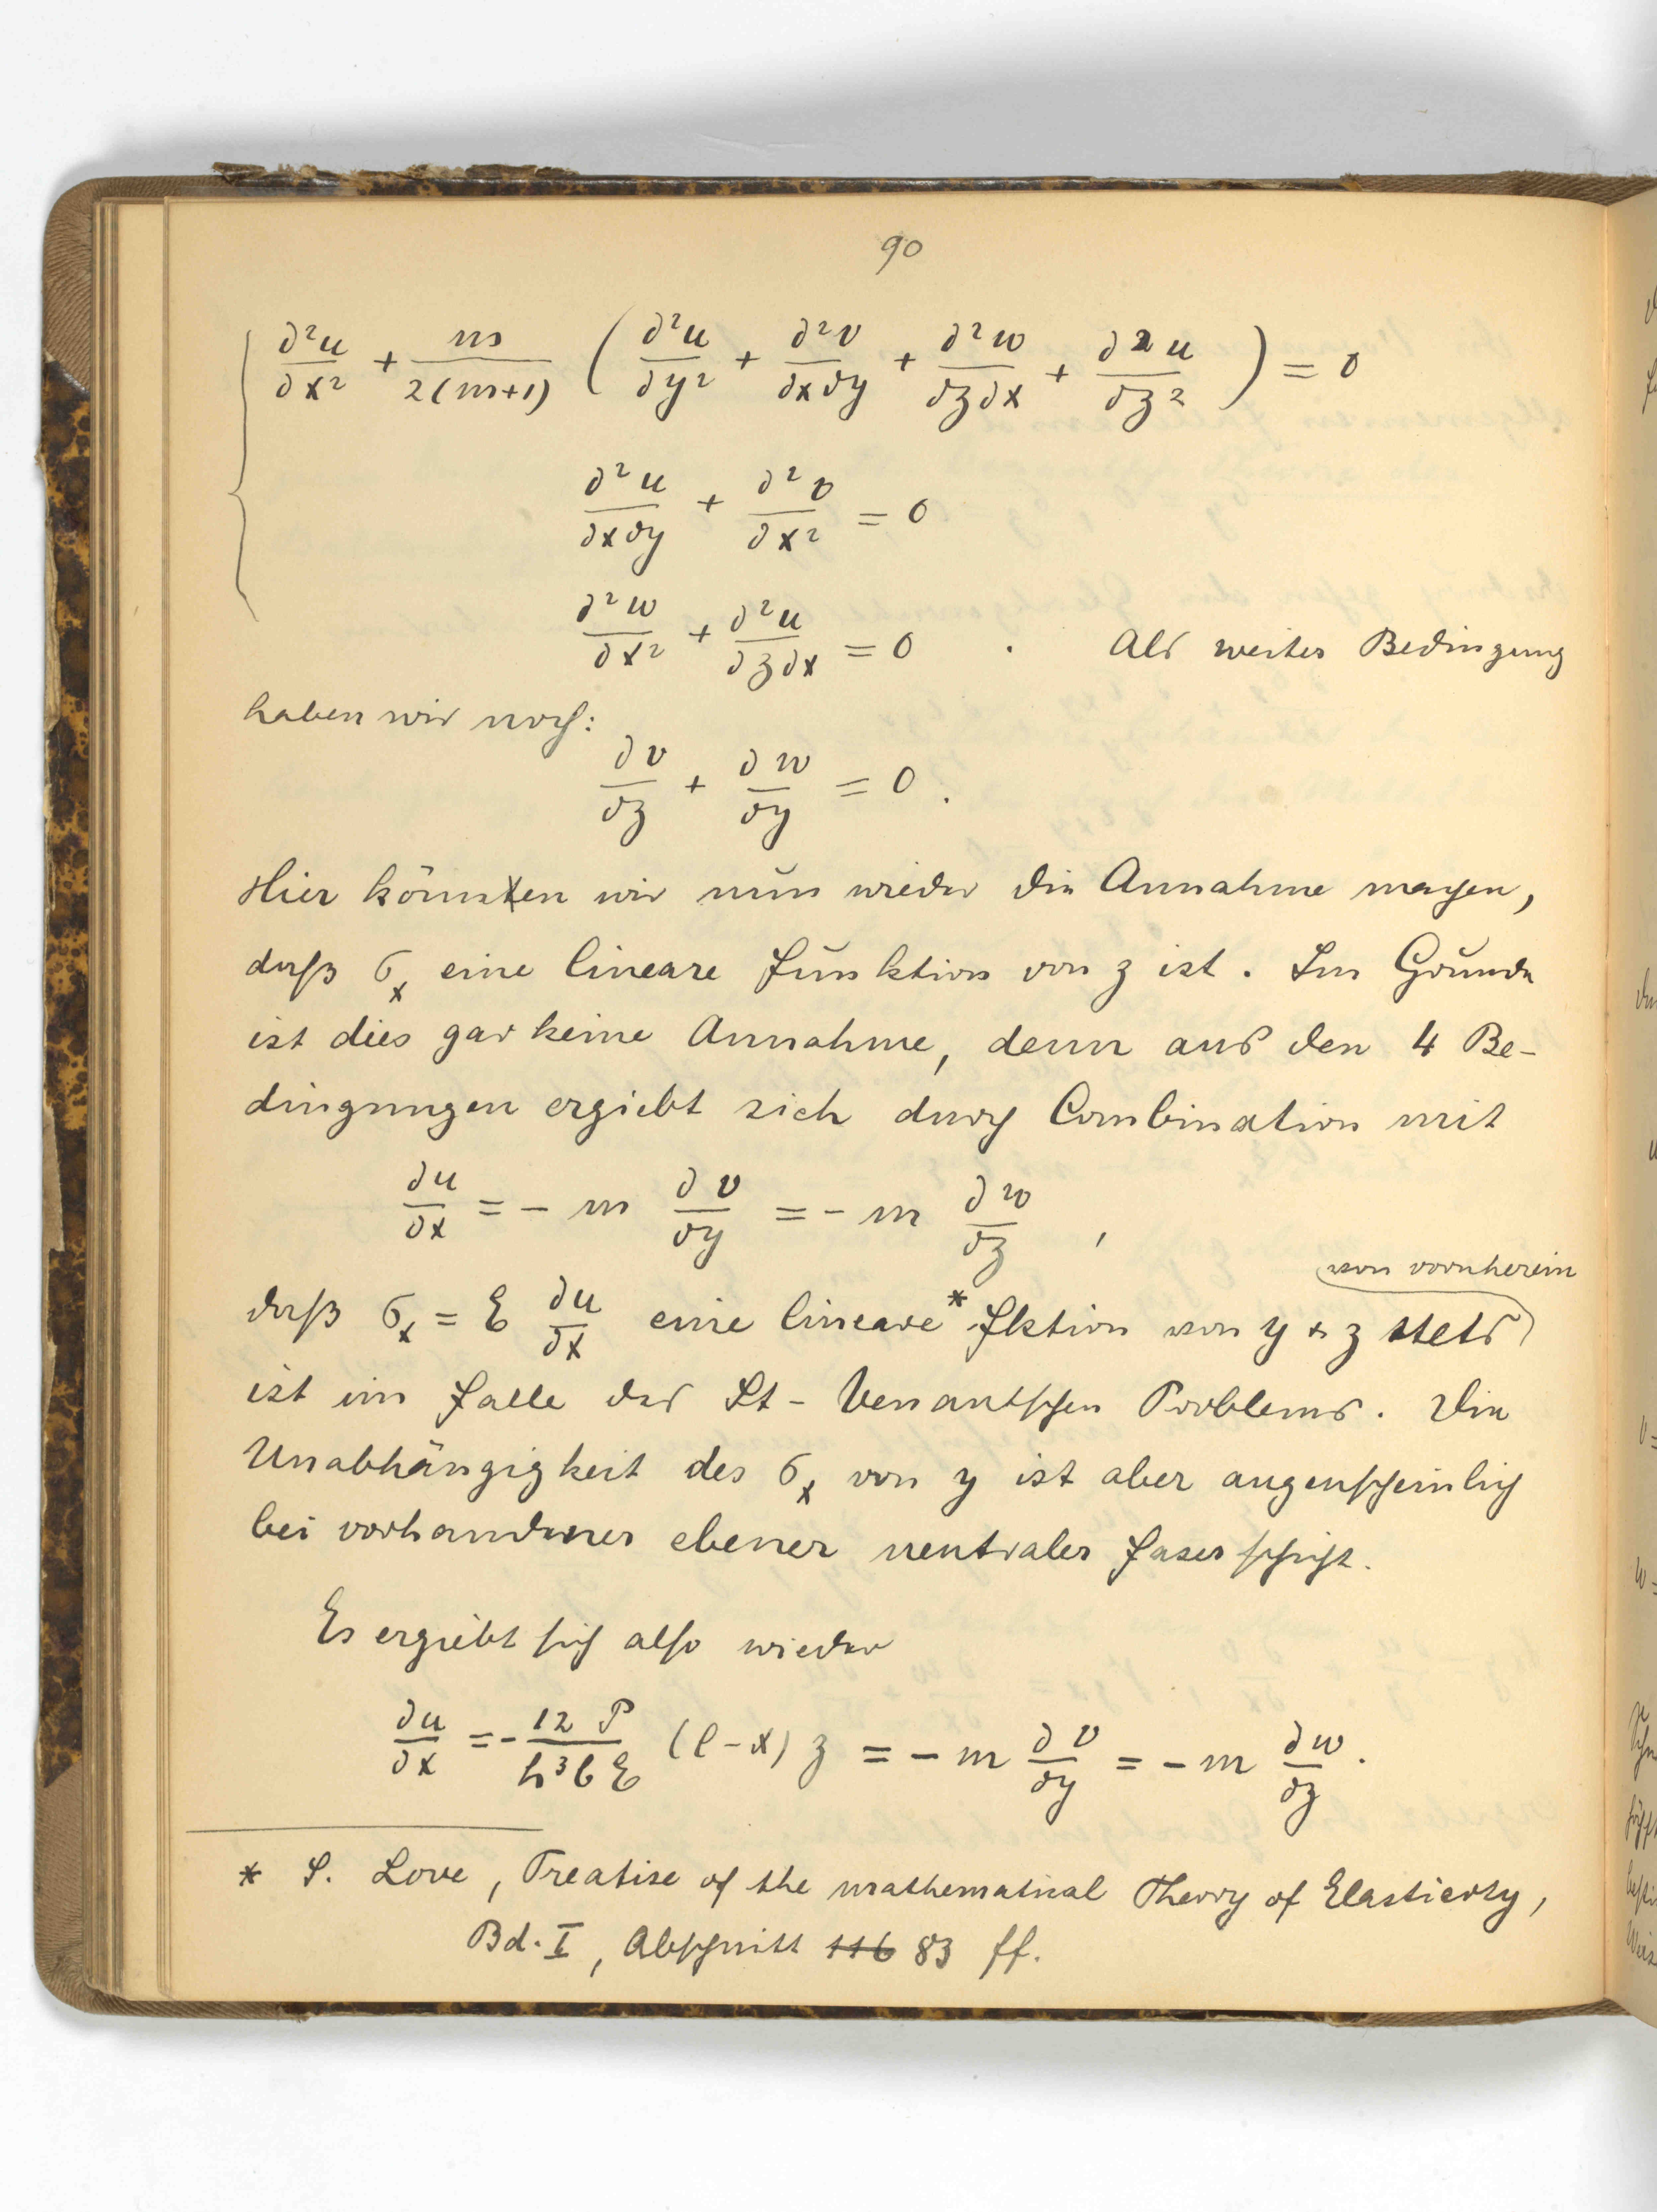 90
∂²u/∂x² + m/2(m+1) (∂²u/∂y² + ∂²v/∂x∂y + ∂²w/∂z∂x + ∂2u/∂z²) = 0
∂²u/∂x∂y + ∂²v/∂x² = 0
∂²w/∂x² + ∂²u/∂z∂x = 0 . Als weiter Bedingung
haben wir noch:
∂v/∂z + ∂w/∂y = 0.
Hier könnten wir nun wieder die Annahme machen,
daß σx eine lineare Funktion von z ist. Im Grunde
ist dies gar keine Annahme, denn aus den 4 Be-
dingungen ergiebt sich durch Combination mit
∂u/∂x = - m ∂v/∂y = - m ∂w/∂z ,
von vornherein
daß σx = E ∂u/∂x eine lineare* Fktion von y & z stets
ist im Falle des St-Venantschen Problems. Die
Unabhängigkeit des σx von y ist aber augenscheinlich
bei vorhandener ebener neutraler Faserschicht.
Es ergiebt sich also wieder
∂u/∂x = - 12 P/h³bE (l-x) z = - m ∂v/∂y = - m ∂w/∂z.
* S. Love, Treatise of the mathematical Theory of Elasticity,
Bd. I, Abschnitt 116 83 ff.